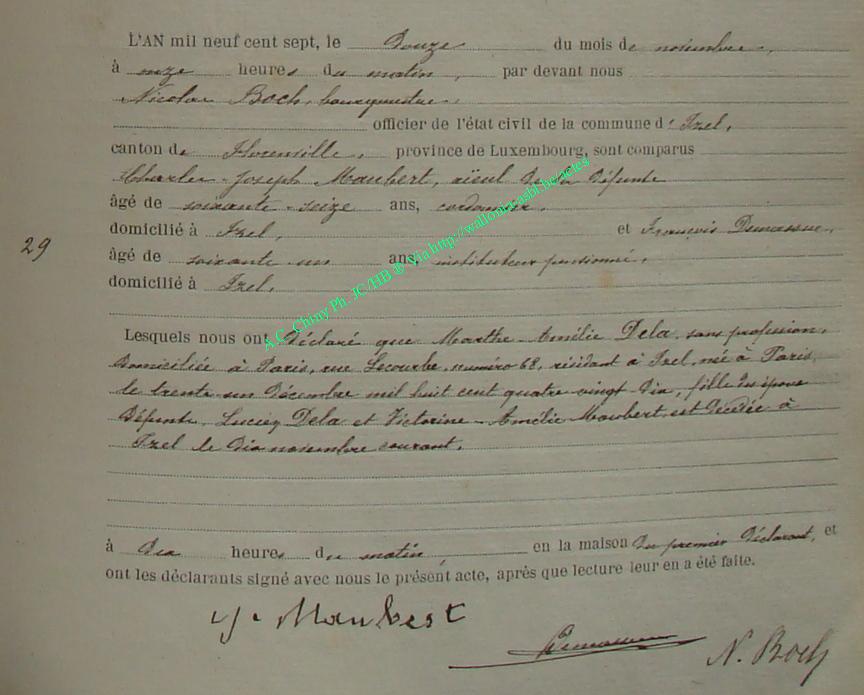 L'AN mil neuf cent sept, le douze du mois de novembre,
à onze heures du matin, par devant nous
Nicolas Boch, bourgmestre,
officier de l'état civil de la commune d'Izel,
canton de Florenville, province de Luxembourg, sont comparus
Charles-Joseph Maubert, aïeul de la défunte
âgé de soixante-seize ans, cordonnier,
domicilié à Izel, et François Demasure,
29
âgé de soixante un ans, instituteur pensionné,
domicilié à Izel,
Lesquels nous ont déclaré que Marthe-Amélie Dela, sans profession,
domiciliée à Paris, rue Lecourbe, numéro 68, résidant à Izel, née à Paris,
le trente-un décembre mil huit cent quatre vingt dix, fille des époux
défunts, Lucien Dela et Victorine-Amélie Maubert, est décédée à
Izel le dix novembre courant,
à dix heures du matin, en la maison du premier déclarant, et
ont les déclarants signé avec nous le présent acte, après que lecture leur en a été faite.
J. Maubert
N. Boch
A.C. Chiny Ph. JC/HB ® Via http://wallonia.asbl.be/actes